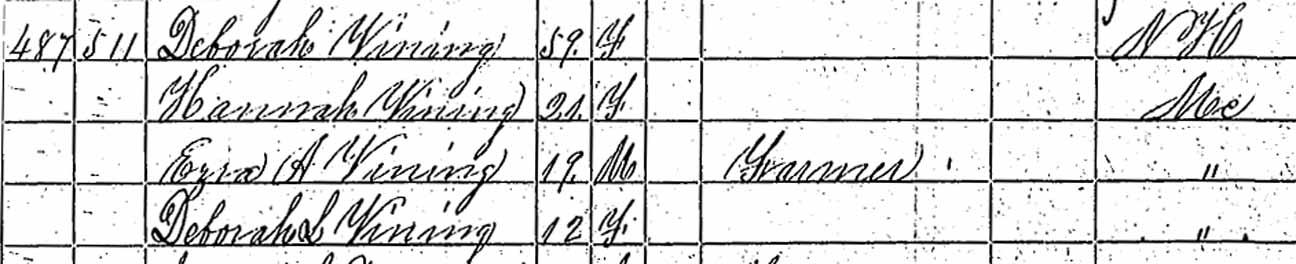 487 511 Deborah Vining 59. F N H
Hannah Vining 21. F Me
Ezra A Vining 19. M Farmer "
Deborah L Vining 12 F. "